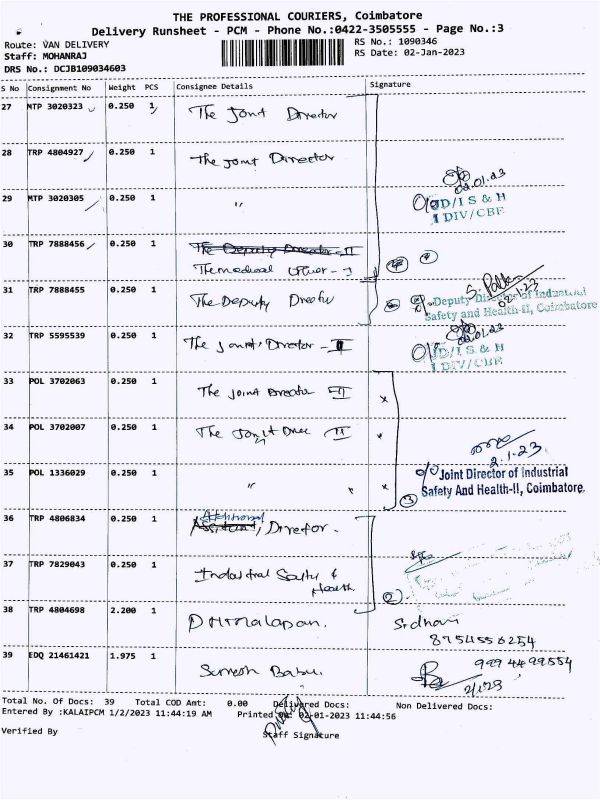 THE PROFESSIONAL COURIERS, Coimbatore
Delivery Runsheet - PCM - Phone No.:0422-3505555 - Page No.:3
Route: VAN DELIVERY RS No.: 1090346
Staff: MOHANRAJ RS Date: 02-Jan-2023
DRS No.: DCJB109034603
S No Consignment No Weight PCS Consignee Details Signature
27 MTP 3020323 0.250 1 The Joint Director
28 TRP 4804927 0.250 1 The Joint Director
02.01.23
29 MTP 3020305 0.250 1 "
JD/I S & H
I DIV/CBE
30 TRP 7888456 0.250 1 The Deputy Director - II
The medical officer - I
31 TRP 7888455 0.250 1 The Deputy
02.1.23
Deputy Director of Industrial
Safety and Health-II, Coimbatore
32 TRP 5595539 0.250 1 The Joint Director - II
02.01.23
JD/I S & H
I DIV/CBE
33 POL 3702063 0.250 1 The Joint Director II x
34 POL 3702007 0.250 1 The Joint II
2.1.23
35 POL 1336029 0.250 1 " " x
o/o Joint Director of Industrial
Safety And Health-II, Coimbatore.
36 TRP 4806834 0.250 1 Additional
Assistant, Director.
37 TRP 7829043 0.250 1 Industrial Safty &
Health.
38 TRP 4804698 2.200 1 Sridhar
8754556254
39 EDQ 21461421 1.975 1 Suresh Babu. 9994499554
2/1/23
Total No. Of Docs: 39 Total COD Amt: 0.00 Delivered Docs: Non Delivered Docs:
Entered By :KALAIPCM 1/2/2023 11:44:19 AM Printed On: 02-01-2023 11:44:56
Verified By Staff Signature